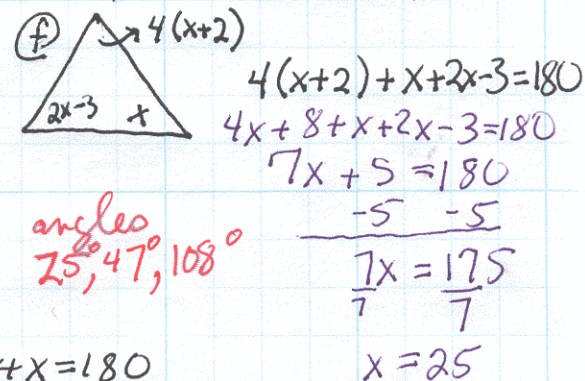 f
4(x+2)
2x-3 x
4(x+2)+x+2x-3=180
4x+8+x+2x-3=180
7x+5=180
-5 -5
7x = 175
7 7
x=25
angles
25°, 47°, 108°
+x=180